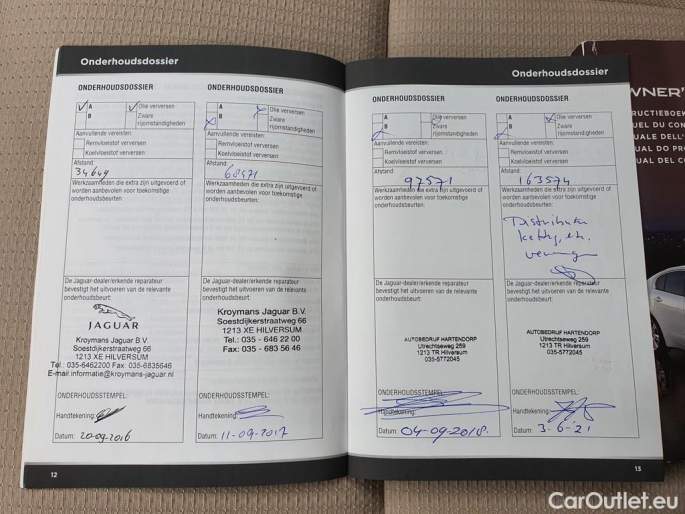 Onderhoudsdossier
ONDERHOUDSDOSSIER
A
Olie verversen
B
Zware
rijomstandigheden
Aanvullende vereisten:
Remvloeistof verversen
Koelvloeistof verversen
Afstand:
34649
Werkzaamheden die extra zijn uitgevoerd of
worden aanbevolen voor toekomstige
onderhoudsbeurten:
De Jaguar-dealer/erkende reparateur
bevestigt het uitvoeren van de relevante
onderhoudsbeurt:
JAGUAR
Kroymans Jaguar B.V.
Soestdijkerstraatweg 66
1213 XE HILVERSUM
Tel.: 035-6462200 Fax: 035-6835646
E-mail: informatie@kroymans-jaguar.nl
ONDERHOUDSSTEMPEL:
Handtekening:
Datum: 20-09-2016
12
ONDERHOUDSDOSSIER
A
Olie verversen
B
Zware
rijomstandigheden
Aanvullende vereisten:
Remvloeistof verversen
Koelvloeistof verversen
Afstand:
68571
Werkzaamheden die extra zijn uitgevoerd of
worden aanbevolen voor toekomstige
onderhoudsbeurten:
De Jaguar-dealer/erkende reparateur
bevestigt het uitvoeren van de relevante
onderhoudsbeurt:
Kroymans Jaguar B.V.
Soestdijkerstraatweg 66
1213 XE HILVERSUM
Tel.: 035 - 646 22 00
Fax: 035 - 683 56 46
ONDERHOUDSSTEMPEL:
Handtekening:
Datum: 11-09-2017
Onderhoudsdossier
ONDERHOUDSDOSSIER
A
Olie verversen
B
Zware
rijomstandigheden
Aanvullende vereisten:
Remvloeistof verversen
Koelvloeistof verversen
Afstand:
97571
Werkzaamheden die extra zijn uitgevoerd of
worden aanbevolen voor toekomstige
onderhoudsbeurten:
De Jaguar-dealer/erkende reparateur
bevestigt het uitvoeren van de relevante
onderhoudsbeurt:
AUTOBEDRIJF HARTENDORP
Utrechtseweg 259
1213 TR Hilversum
035-5772045
ONDERHOUDSSTEMPEL:
Handtekening:
Datum: 04-09-2018.
ONDERHOUDSDOSSIER
A
Olie verversen
B
Zware
rijomstandigheden
Aanvullende vereisten:
Remvloeistof verversen
Koelvloeistof verversen
Afstand:
163574
Werkzaamheden die extra zijn uitgevoerd of
worden aanbevolen voor toekomstige
onderhoudsbeurten:
De Jaguar-dealer/erkende reparateur
bevestigt het uitvoeren van de relevante
onderhoudsbeurt:
AUTOBEDRIJF HARTENDORP
Utrechtseweg 259
1213 TR Hilversum
035-5772045
ONDERHOUDSSTEMPEL:
Handtekening:
Datum: 3-6-21
13
WNER'
RUCTIEBOEK
UEL DU CON
NUALE DELL'
UAL DO PRO
UAL DEL CO
CarOutlet.eu